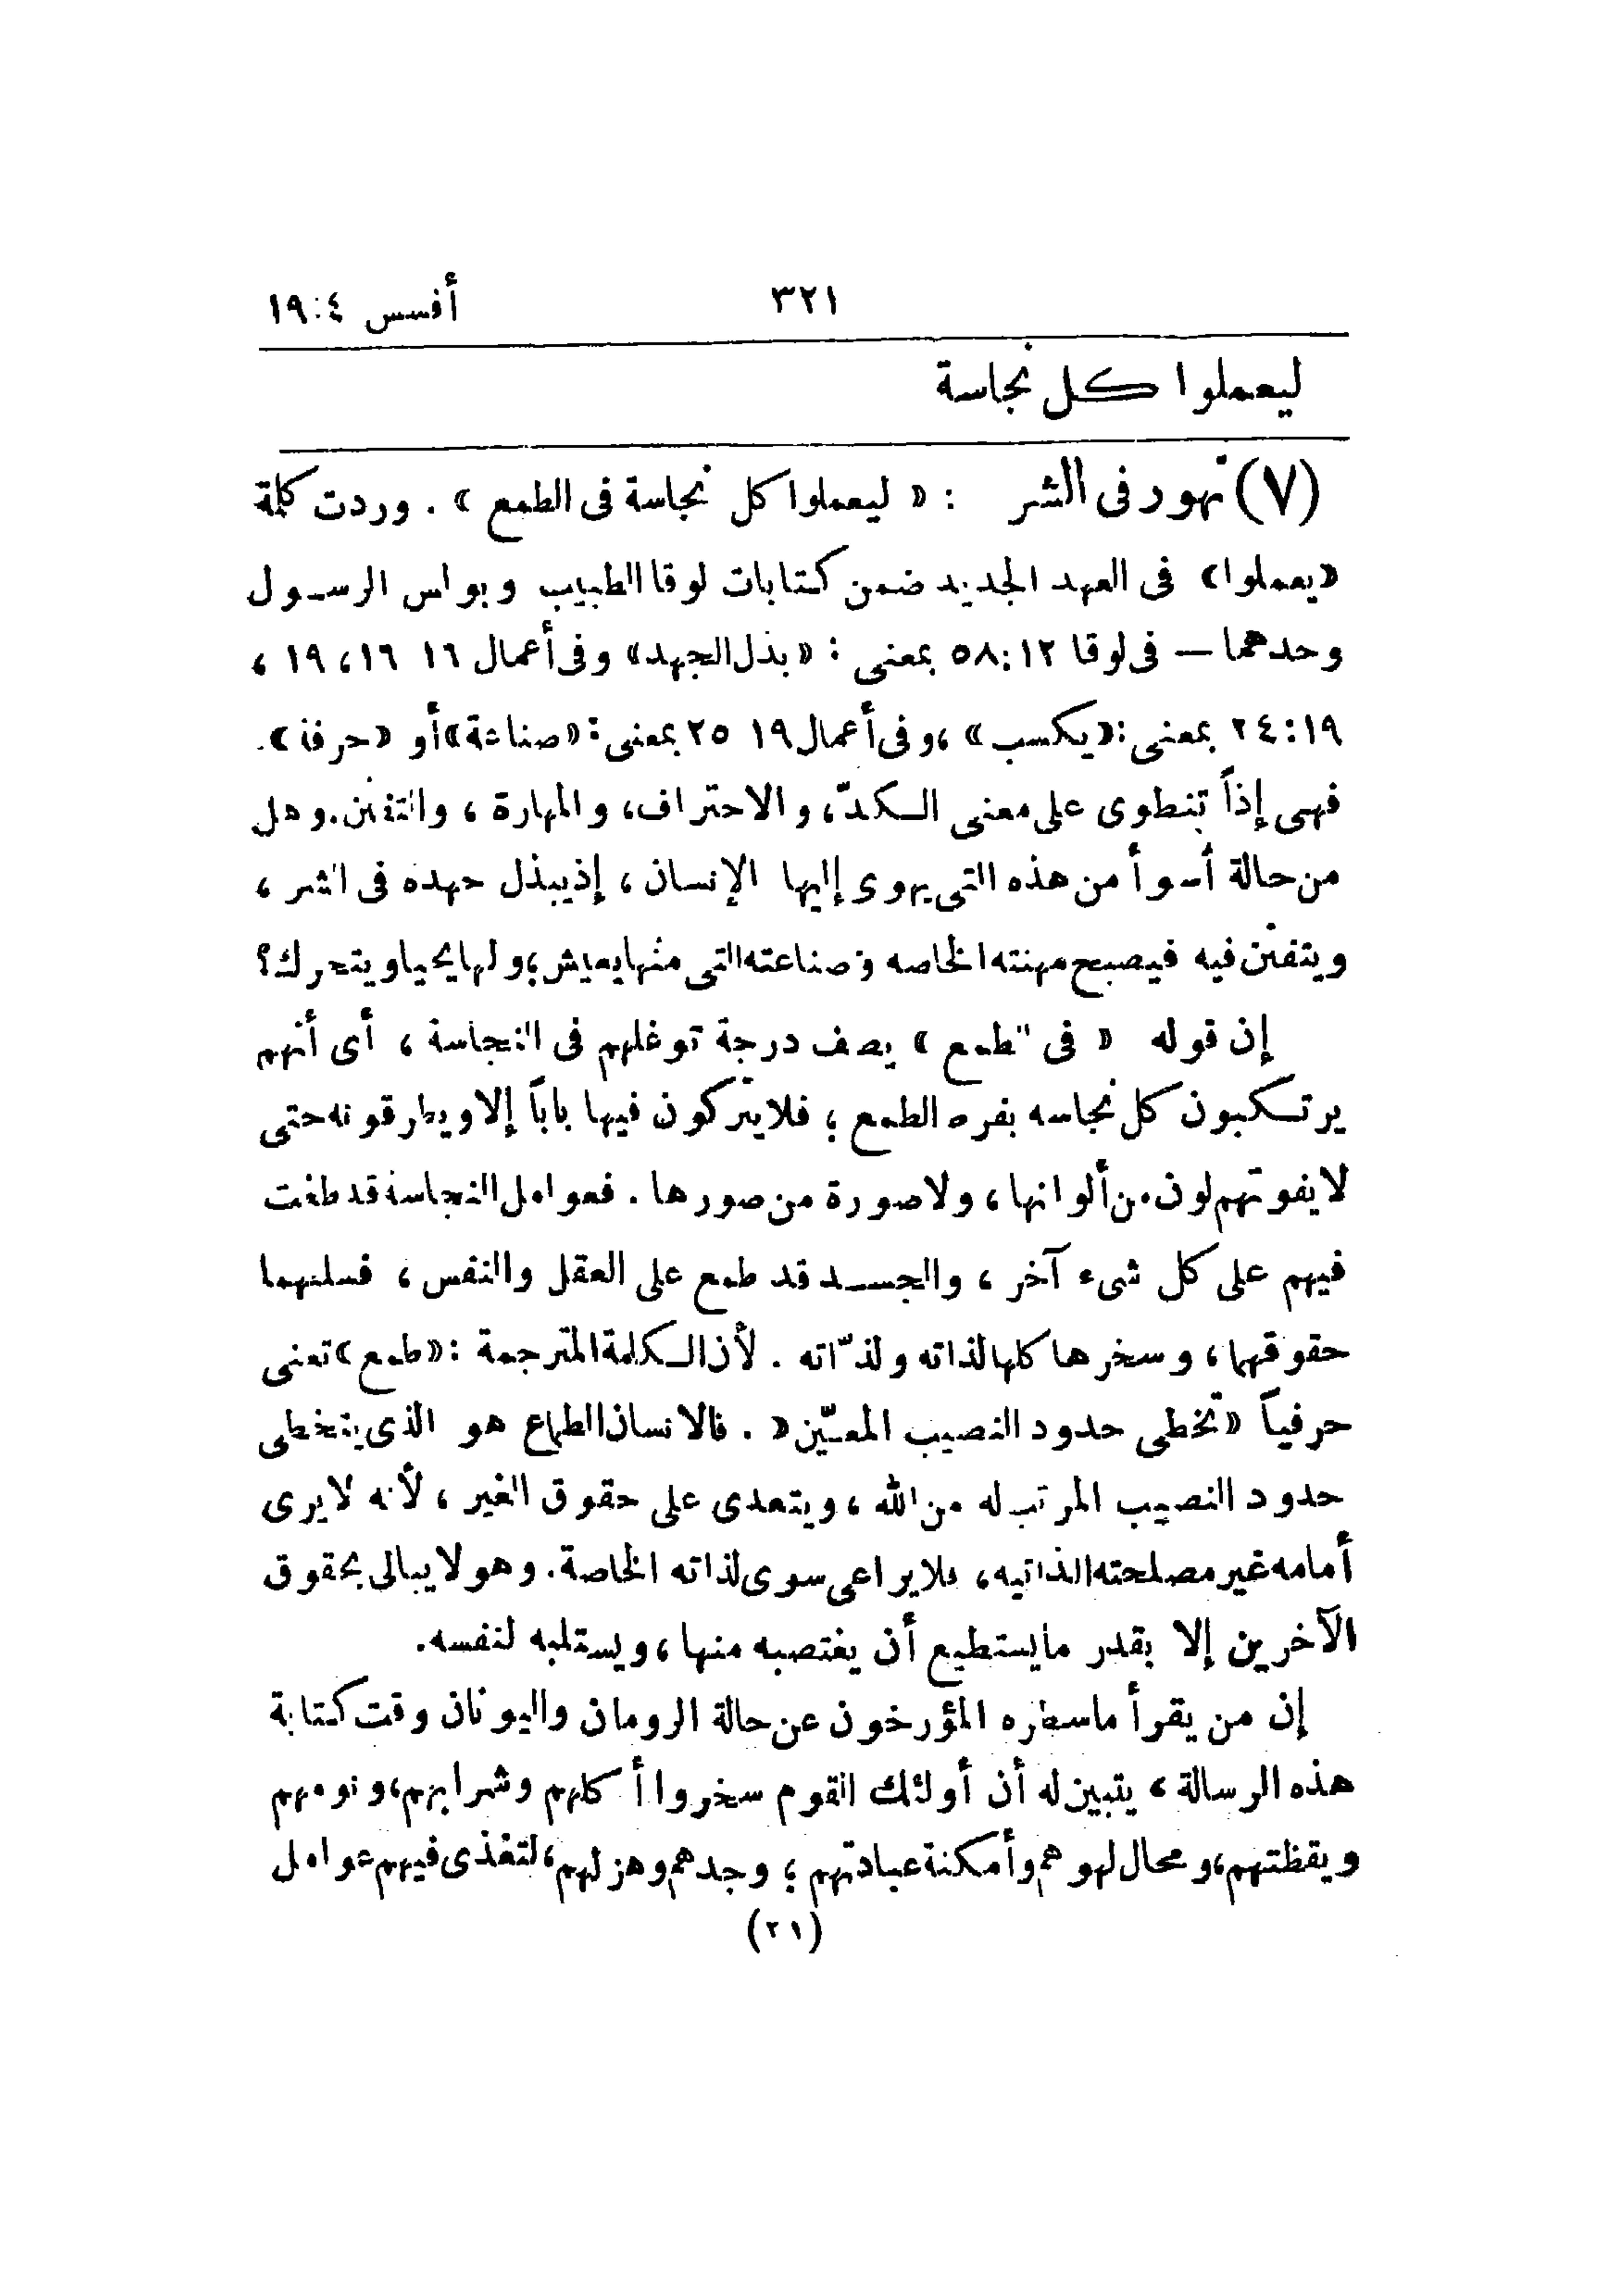 أفسس ٤:١٩
٣٢١
ليعملوا كل نجاسة
(٧) تهور فى الشر : « ليعملوا كل نجاسة فى الطمع » . وردت كلمة
«يعملوا» فى العهد الجديد ضمن كتابات لوقا الطبيب وبولس الرسول
وحدهما — فى لوقا ٥٨:١٢ بمعنى : «بذل الجهد» وفى أعمال ١٦ ١٦، ١٩ ،
٢٤:١٩ بمعنى : «يكسب» ، وفى أعمال ١٩ ٢٥ بمعنى : «صناعة» أو «حرفة» .
فهى إذاً تنطوى على معنى الكدّ، والاحتراف، والمهارة ، والتفنن . وهل
من حالة أسوأ من هذه التى يهوى إليها الإنسان ، إذ يبذل جهده فى الشر ،
ويتفنن فيه فيصبح مهنته الخاصه وصناعته التى منها يعيش ؛ ولها يحيا ويتحرك؟
إن قوله « فى الطمع » يصف درجة توغلهم فى النجاسة ، أى أنهم
يرتكبون كل نجاسه بفره الطمع ؛ فلا يتركون فيها باباً إلا ويطرقونه حتى
لا يفوتهم لون من ألوانها ، ولا صورة من صورها . فعوامل النجاسة قد طغت
فيهم على كل شىء آخر ، والجسد قد طمع على العقل والنفس ، فسلبهما
حقوقهما ، وسخرها كلها لذاته ولذّاته . لأن الكلمة المترجمة : «طمع» تعنى
حرفياً «تخطى حدود النصيب المعيّن« . فالانسان الطماع هو الذى يتخطى
حدود النصيب المرتب له من الله ، ويتعدى على حقوق الغير ، لأنه لا يرى
أمامه غير مصلحته الذاتيه ، فلا يراعى سوى لذاته الخاصة . وهو لا يبالى بحقوق
الآخرين إلا بقدر ما يستطيع أن يغتصبه منها ، ويستلبه لنفسه .
إن من يقرأ ما سطره المؤرخون عن حالة الرومان واليونان وقت كتابة
هذه الرسالة ، يتبين له أن أولئك القوم سخروا أكلهم وشرابهم ، ونومهم
ويقظتهم ، ومحال لهوهم وأمكنة عبادتهم ؛ وجدهم وهزلهم ، لتغذى فيهم عوامل
(٢١)